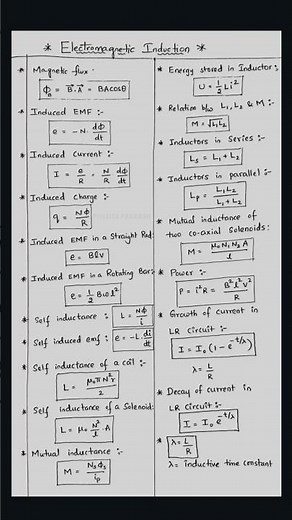 * Electromagnetic Induction *
* Magnetic flux :
ϕ_B = B⃗.A⃗ = BA cosθ
* Induced EMF :-
e = -N. dϕ/dt
* Induced Current :-
I = e/R = N/R dϕ/dt
* Induced charge :-
q = Nϕ/R
* Induced EMF in a Straight Rod:
e = Bℓv
* Induced EMF in a Rotating Bar:
e = 1/2 Bωℓ²
* Self inductance : L = Nϕ/i
* Self induced emf : e = -L di/dt
* Self inductance of a coil :-
L = μ₀πN²r/2
* Self inductance of a Solenoid:
L = μ₀ N²/ℓ A
* Mutual inductance :-
M = N₂ϕ₂/i_p
* Energy stored in Inductor:
U = 1/2 Li²
* Relation b/w L₁, L₂ & M :-
M = √L₁L₂
* Inductors in Series :-
L_S = L₁ + L₂
* Inductors in parallel :-
L_P = L₁L₂/L₁+L₂
* Mutual inductance of
two co-axial Solenoids:
M = μ₀N₁N₂A/ℓ
* Power :-
P = i²R = B²ℓ²V²/R
* Growth of current in
LR Circuit :-
I = I₀(1 - e^-t/λ)
λ = L/R
* Decay of current in
LR Circuit :-
I = I₀ e^-t/λ
* λ = L/R
λ = inductive time constant